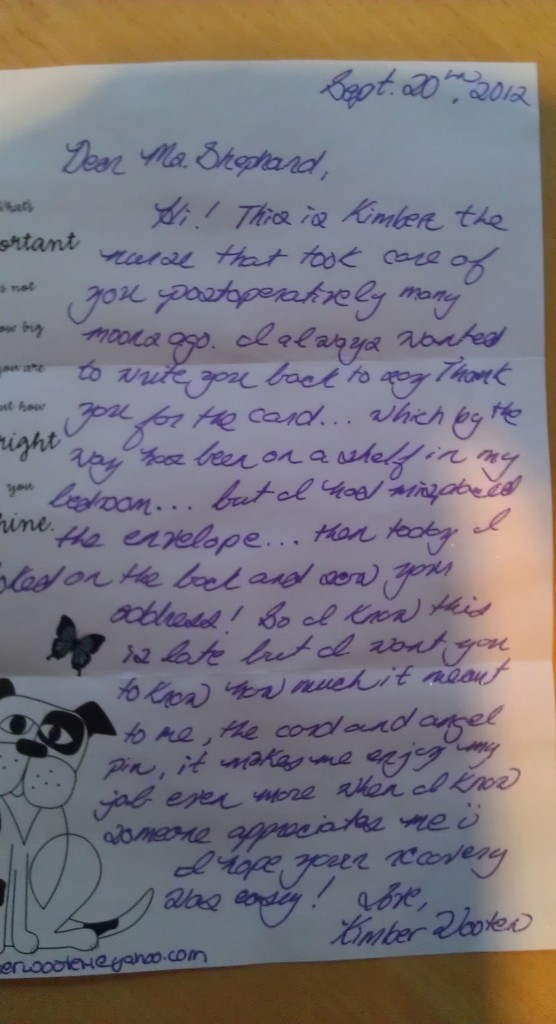 Sept. 20th, 2012
Dear Ms. Shephard,
Hi! This is Kimber the
nurse that took care of
you postoperatively many
moons ago. I always wanted
to write you back to say Thank
you for the card... which by the
way has been on a shelf in my
bedroom... but I had misplaced
the envelope... then today I
oked on the back and saw your
address! So I know this
is late but I want you
to know how much it meant
to me, the card and angel
pin, it makes me enjoy my
job even more when I know
someone appreciates me ü
I hope your recovery
was easy! Love,
Kimber Wooten
What's
ortant
s not
ow big
you are
ut how
right
you
hine.
erwooten@yahoo.com